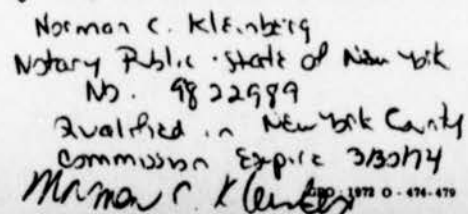 Norman C. Kleinberg
Notary Public - State of New York
No. 9822989
Qualified in New York County
Commission Expire 3/30/74
Norman C. Kleinberg
GPO : 1972 O - 474-479